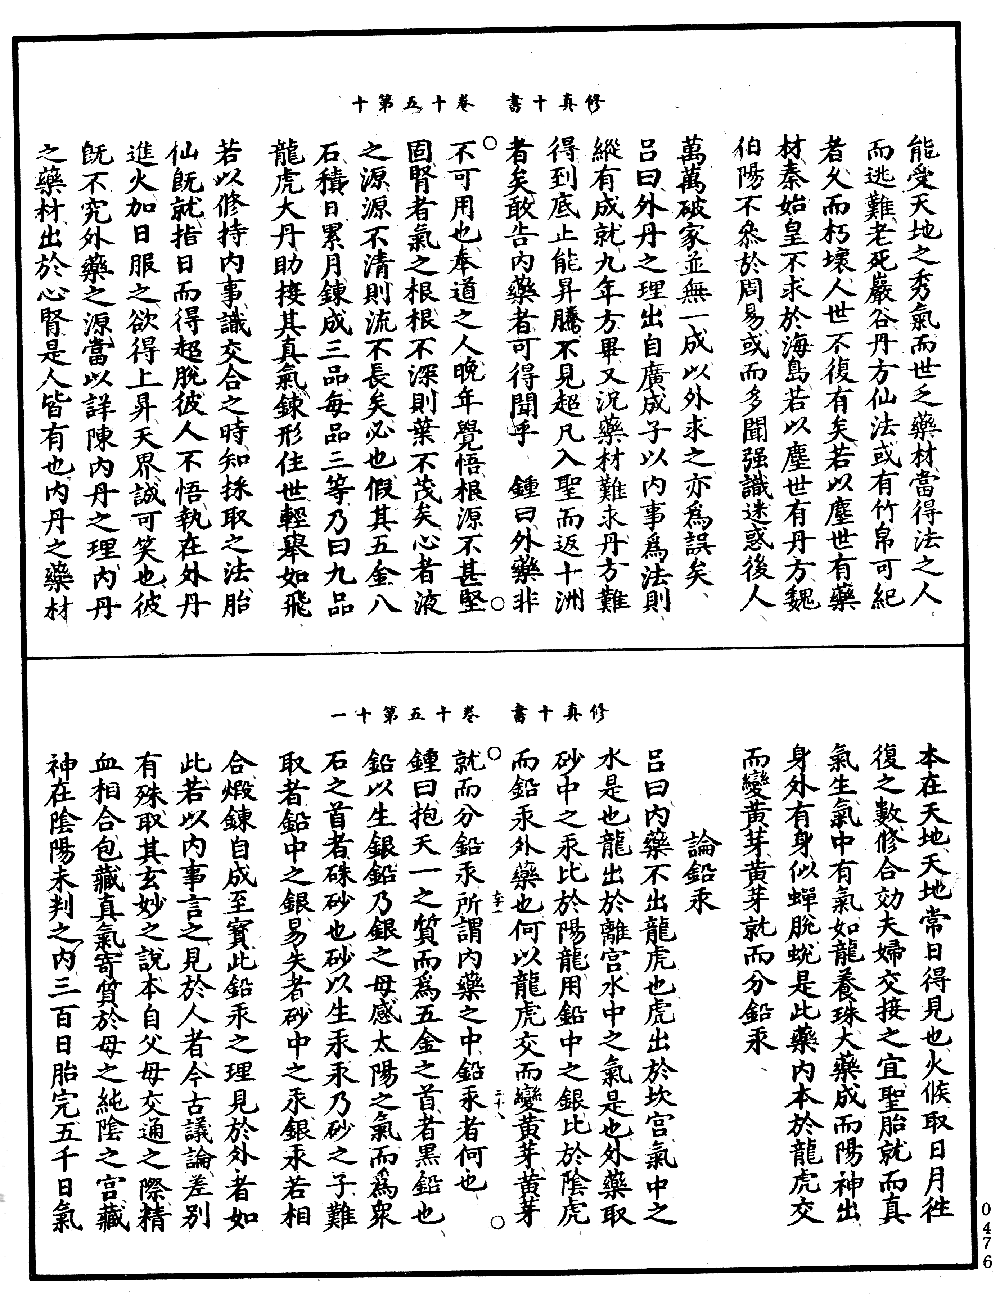 修真十書　卷十五第十
能受天地之秀氣而世乏藥材當得法之人
而逃難老死巖谷丹方仙法或有竹帛可紀
者久而朽壞人世不復有矣若以塵世有藥
材秦始皇不求於海島若以塵世有丹方魏
伯陽不叅於周易或而多聞强識迷惑後人
萬萬破家並無一成以外求之亦爲誤矣
呂曰外丹之理出自廣成子以內事爲法則
縱有成就九年方畢又況藥材難求丹方難
得到底止能昇騰不見超凡入聖而返十洲
者矣敢告內藥者可得聞乎　鍾曰外藥非
不可用也奉道之人晚年覺悟根源不甚堅
固腎者氣之根根不深則葉不茂矣心者液
之源源不清則流不長矣必也假其五金八
石積日累月鍊成三品每品三等乃曰九品
龍虎大丹助接其真氣鍊形住世輕舉如飛
若以修持內事識交合之時知採取之法胎
仙既就指日而得超脫彼人不悟執在外丹
進火加日服之欲得上昇天界誠可笑也彼
既不究外藥之源當以詳陳內丹之理內丹
之藥材出於心腎是人皆有也內丹之藥材
修真十書　卷十五第十一
本在天地天地常日得見也火候取日月徃
復之數修合効夫婦交接之宜聖胎就而真
氣生氣中有氣如龍養珠大藥成而陽神出
身外有身似蟬脫蛻是此藥內本於龍虎交
而變黃芽黃芽就而分鉛汞
論鉛汞
呂曰內藥不出龍虎也虎出於坎宮氣中之
水是也龍出於離宮水中之氣是也外藥取
砂中之汞比於陽龍用鉛中之銀比於陰虎
而鉛汞外藥也何以龍虎交而變黃芽黃芽
就而分鉛汞所謂內藥之中鉛汞者何也
鍾曰抱天一之質而爲五金之首者黑鉛也
鉛以生銀鉛乃銀之母感太陽之氣而爲衆
石之首者硃砂也砂以生汞汞乃砂之子難
取者鉛中之銀易失者砂中之汞銀汞若相
合煅鍊自成至寶此鉛汞之理見於外者如
此若以內事言之見於人者今古議論差別
有殊取其玄妙之說本自父母交通之際精
血相合包藏真氣寄質於母之純陰之宮藏
神在陰陽未判之內三百日胎完五千日氣
0476